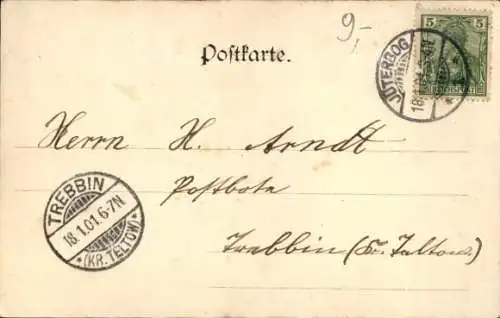 9,-
Postkarte.
5
5
REICHSPOST
JÜTERBOG
18.1.01.
Herrn H. Arndt
Postbote
Trebbin (Kr. Teltow.)
TREBBIN
18.1.01.6-7N
*(KR. TELTOW)*